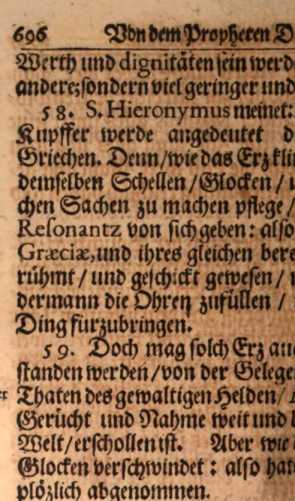 696 Von dem Propheten D
Werth und dignitäten sein werd
andere; sondern viel geringer und
58. S. Hieronymus meinet:
Kupffer werde angedeutet d
Griechen. Denn/wie das Ertz kli
demselben Schellen/Glocken/
chen Sachen zu machen pflege/
Resonantz von sich geben: also
Græciæ, und ihres gleichen bere
rühmt/ und geschickt gewesen/
dermann die Ohren zufüllen/
Ding fürzubringen.
59. Doch mag solch Ertz au
standen werden/von der Gelege
Thaten des gewaltigen Helden/
Gerücht und Nahme weit und
Welt/erschollen ist. Aber wie
Glocken verschwindet: also hat
plözlich abgenommen.